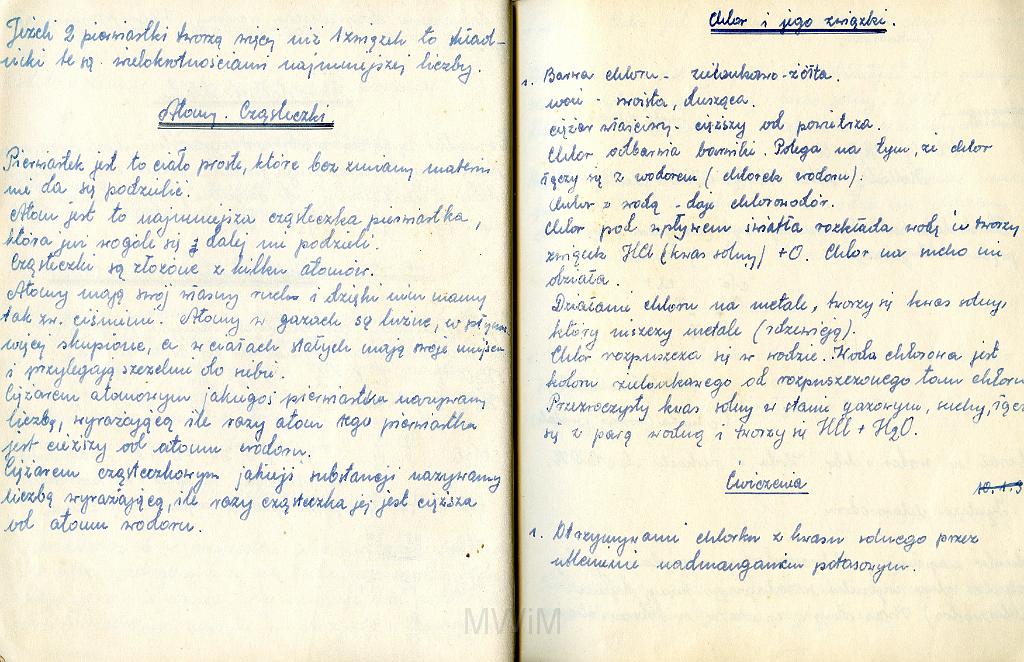 Jeżeli 2 pierwiastki tworzą więcej niż 1 związek to skład-
niki te są wielokrotnościami najmniejszej liczby.
Atomy. Cząsteczki
Pierwiastek jest to ciało proste, które bez zmiany materii
nie da się podzielić.
Atom jest to najmniejsza cząsteczka pierwiastka,
która już wogóle się dalej nie podzieli.
Cząsteczki są złożone z kilku atomów.
Atomy mają swój własny ruch i dzięki nim mamy
tak zw. ciśnienie. Atomy w gazach są luźne, w płynach
więcej skupione, a w ciałach stałych mają swoje miejsca
i przylegają szczelnie do siebie.
Ciężarem atomowym jakiegoś pierwiastka nazywamy
liczbę, wyrażającą ile razy atom tego pierwiastka
jest cięższy od atomu wodoru.
Ciężarem cząsteczkowym jakiejś substancji nazywamy
liczbę wyrażającą, ile razy cząsteczka jej jest cięższa
od atomu wodoru.
Chlor i jego związki.
1. Barwa chloru - zielonkawo-żółta.
woń - swoista, dusząca.
ciężar właściwy - cięższy od powietrza.
Chlor odbarwia barwniki. Polega na tym, że chlor
łączy się z wodorem (chlorek wodoru).
Chlor z wodą - daje chlorowodór.
Chlor pod wpływem światła rozkłada wodę i tworzy
związek HCl (kwas solny) + O. Chlor na sucho nie
działa.
Działanie chloru na metale, tworzy się kwas solny,
który niszczy metale (rdzewieją).
Chlor rozpuszcza się w wodzie. Woda chlorowa jest
koloru zielonkawego od rozpuszczonego tam chloru.
Przezroczysty kwas solny w stanie gazowym, suchy, łączy
się z parą wodną i tworzy się HCl + H2O.
Ćwiczenia
10.1.9
1. Otrzymywanie chloru z kwasu solnego przez
utlenienie nadmanganianem potasowym.
MWiM